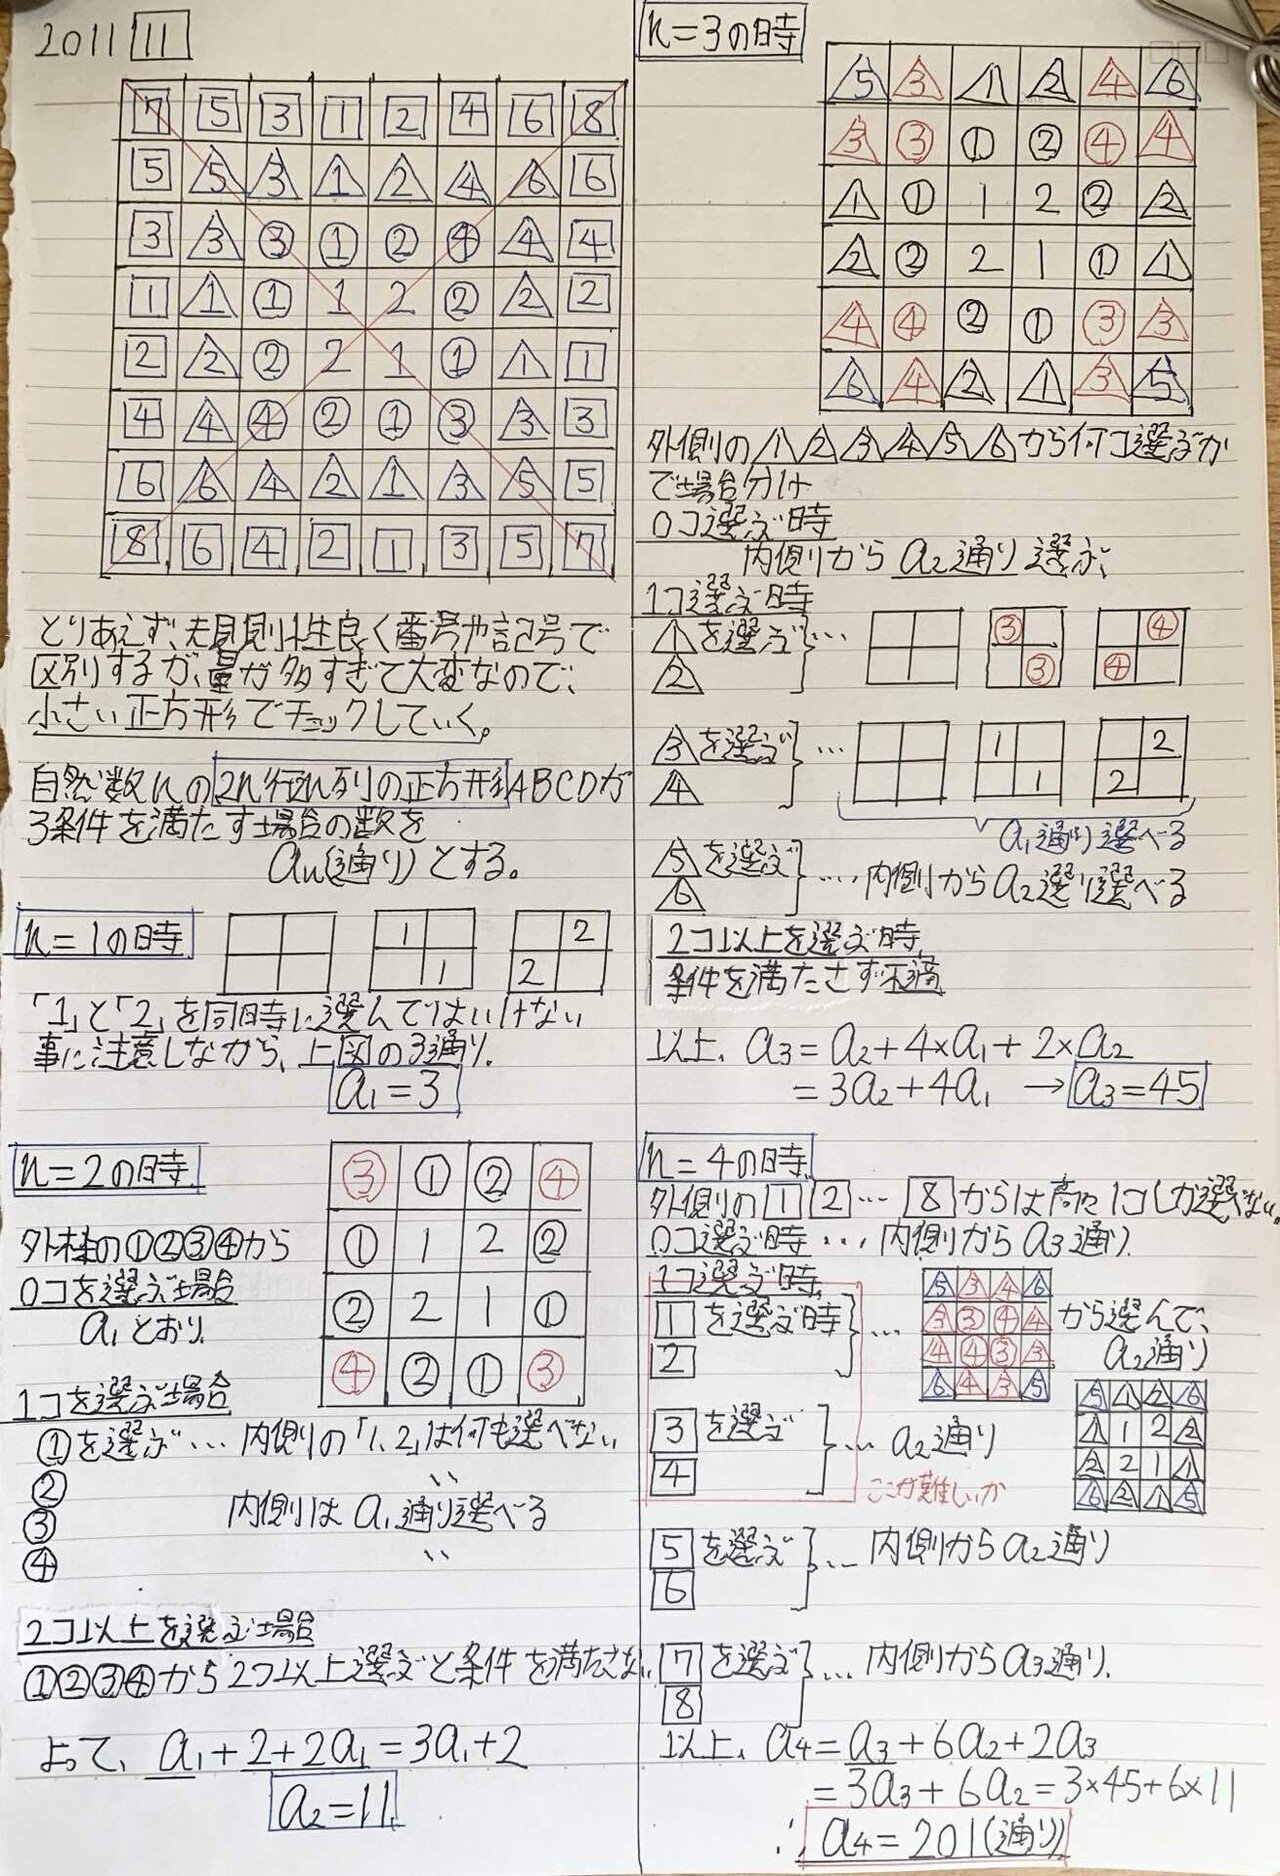 2011 11
7 5 3 1 2 4 6 8
5 5 3 1 2 4 6 6
3 3 ③ ① ② ④ 4 4
1 1 ① 1 2 ② 2 2
2 2 ② 2 1 ① 1 1
4 4 ④ ② ① ③ 3 3
6 6 4 2 1 3 5 5
8 6 4 2 1 3 5 7
とりあえず、規則性良く番号や記号で
区別するが、量が多すぎて大変なので、
小さい正方形でチェックしていく。
自然数nの2n行2n列の正方形ABCDが
3条件を満たす場合の数を
an(通り)とする。
n=1の時
1
1
2
2
「1」と「2」を同時に選んではいけない
事に注意しながら、上図の3通り.
a1=3
n=2の時
③ ① ② ④
① 1 2 ②
② 2 1 ①
④ ② ① ③
外枠の①②③④から
0コを選ぶ場合
a1とおり
1コを選ぶ場合
①を選ぶ…内側の「1、2」は何も選べない
② 〃
③ 内側はa1通り選べる
④ 〃
2コ以上を選ぶ場合
①②③④から2コ以上選ぶと条件を満たさない
よって、a1+2+2a1=3a1+2
a2=11
n=3の時
5 3 1 2 4 6
3 ③ ① ② ④ 4
1 ① 1 2 ② 2
2 ② 2 1 ① 1
4 ④ ② ① ③ 3
6 4 2 1 3 5
外側の1 2 3 4 5 6から何コ選ぶか
で場合分け
0コ選ぶ時
内側からa2通り選ぶ、
1コ選ぶ時
1を選ぶ…
2
③
③
④
④
3を選ぶ…
4
1
1
2
2
a1通り選べる
5を選ぶ…内側からa2選り選べる
6
2コ以上を選ぶ時
条件を満たさず不適
以上、a3=a2+4×a1+2×a2
=3a2+4a1 →a3=45
n=4の時
外側の1 2 … 8からは高々1コしか選べない。
0コ選ぶ時…内側からa3通り.
1コ選ぶ時
1を選ぶ時…
2
5 3 4 6
3 ③ ④ 4
4 ④ ③ 3
6 4 3 5
から選んで、
a2通り
3を選ぶ…a2通り
4
ここが難しいか
5 1 2 6
1 1 2 2
2 2 1 1
6 2 1 5
5を選ぶ…内側からa2通り
6
7を選ぶ…内側からa3通り.
8
以上、a4=a3+6a2+2a3
=3a3+6a2=3×45+6×11
∴a4=201(通り)